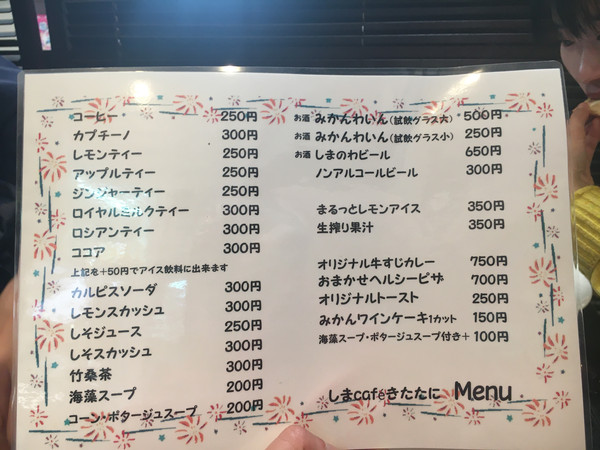 コーヒー 250円
カプチーノ 300円
レモンティー 250円
アップルティー 250円
ジンジャーティー 250円
ロイヤルミルクティー 300円
ロシアンティー 300円
ココア 300円
上記を+50円でアイス飲料に出来ます
カルピスソーダ 300円
レモンスカッシュ 300円
しそジュース 250円
しそスカッシュ 300円
竹桑茶 300円
海藻スープ 200円
コーン・ポタージュスープ 200円
お酒 みかんわいん(試飲グラス大) 500円
お酒 みかんわいん(試飲グラス小) 250円
お酒 しまのわビール 650円
ノンアルコールビール 300円
まるっとしモンアイス 350円
生搾り果汁 350円
オリジナル牛すじカレー 750円
おまかせヘルシーピザ 700円
オリジナルトースト 250円
みかんワインケーキ1カット 150円
海藻スープ・ポタージュスープ付き+100円
しまcaféきたたに Menu